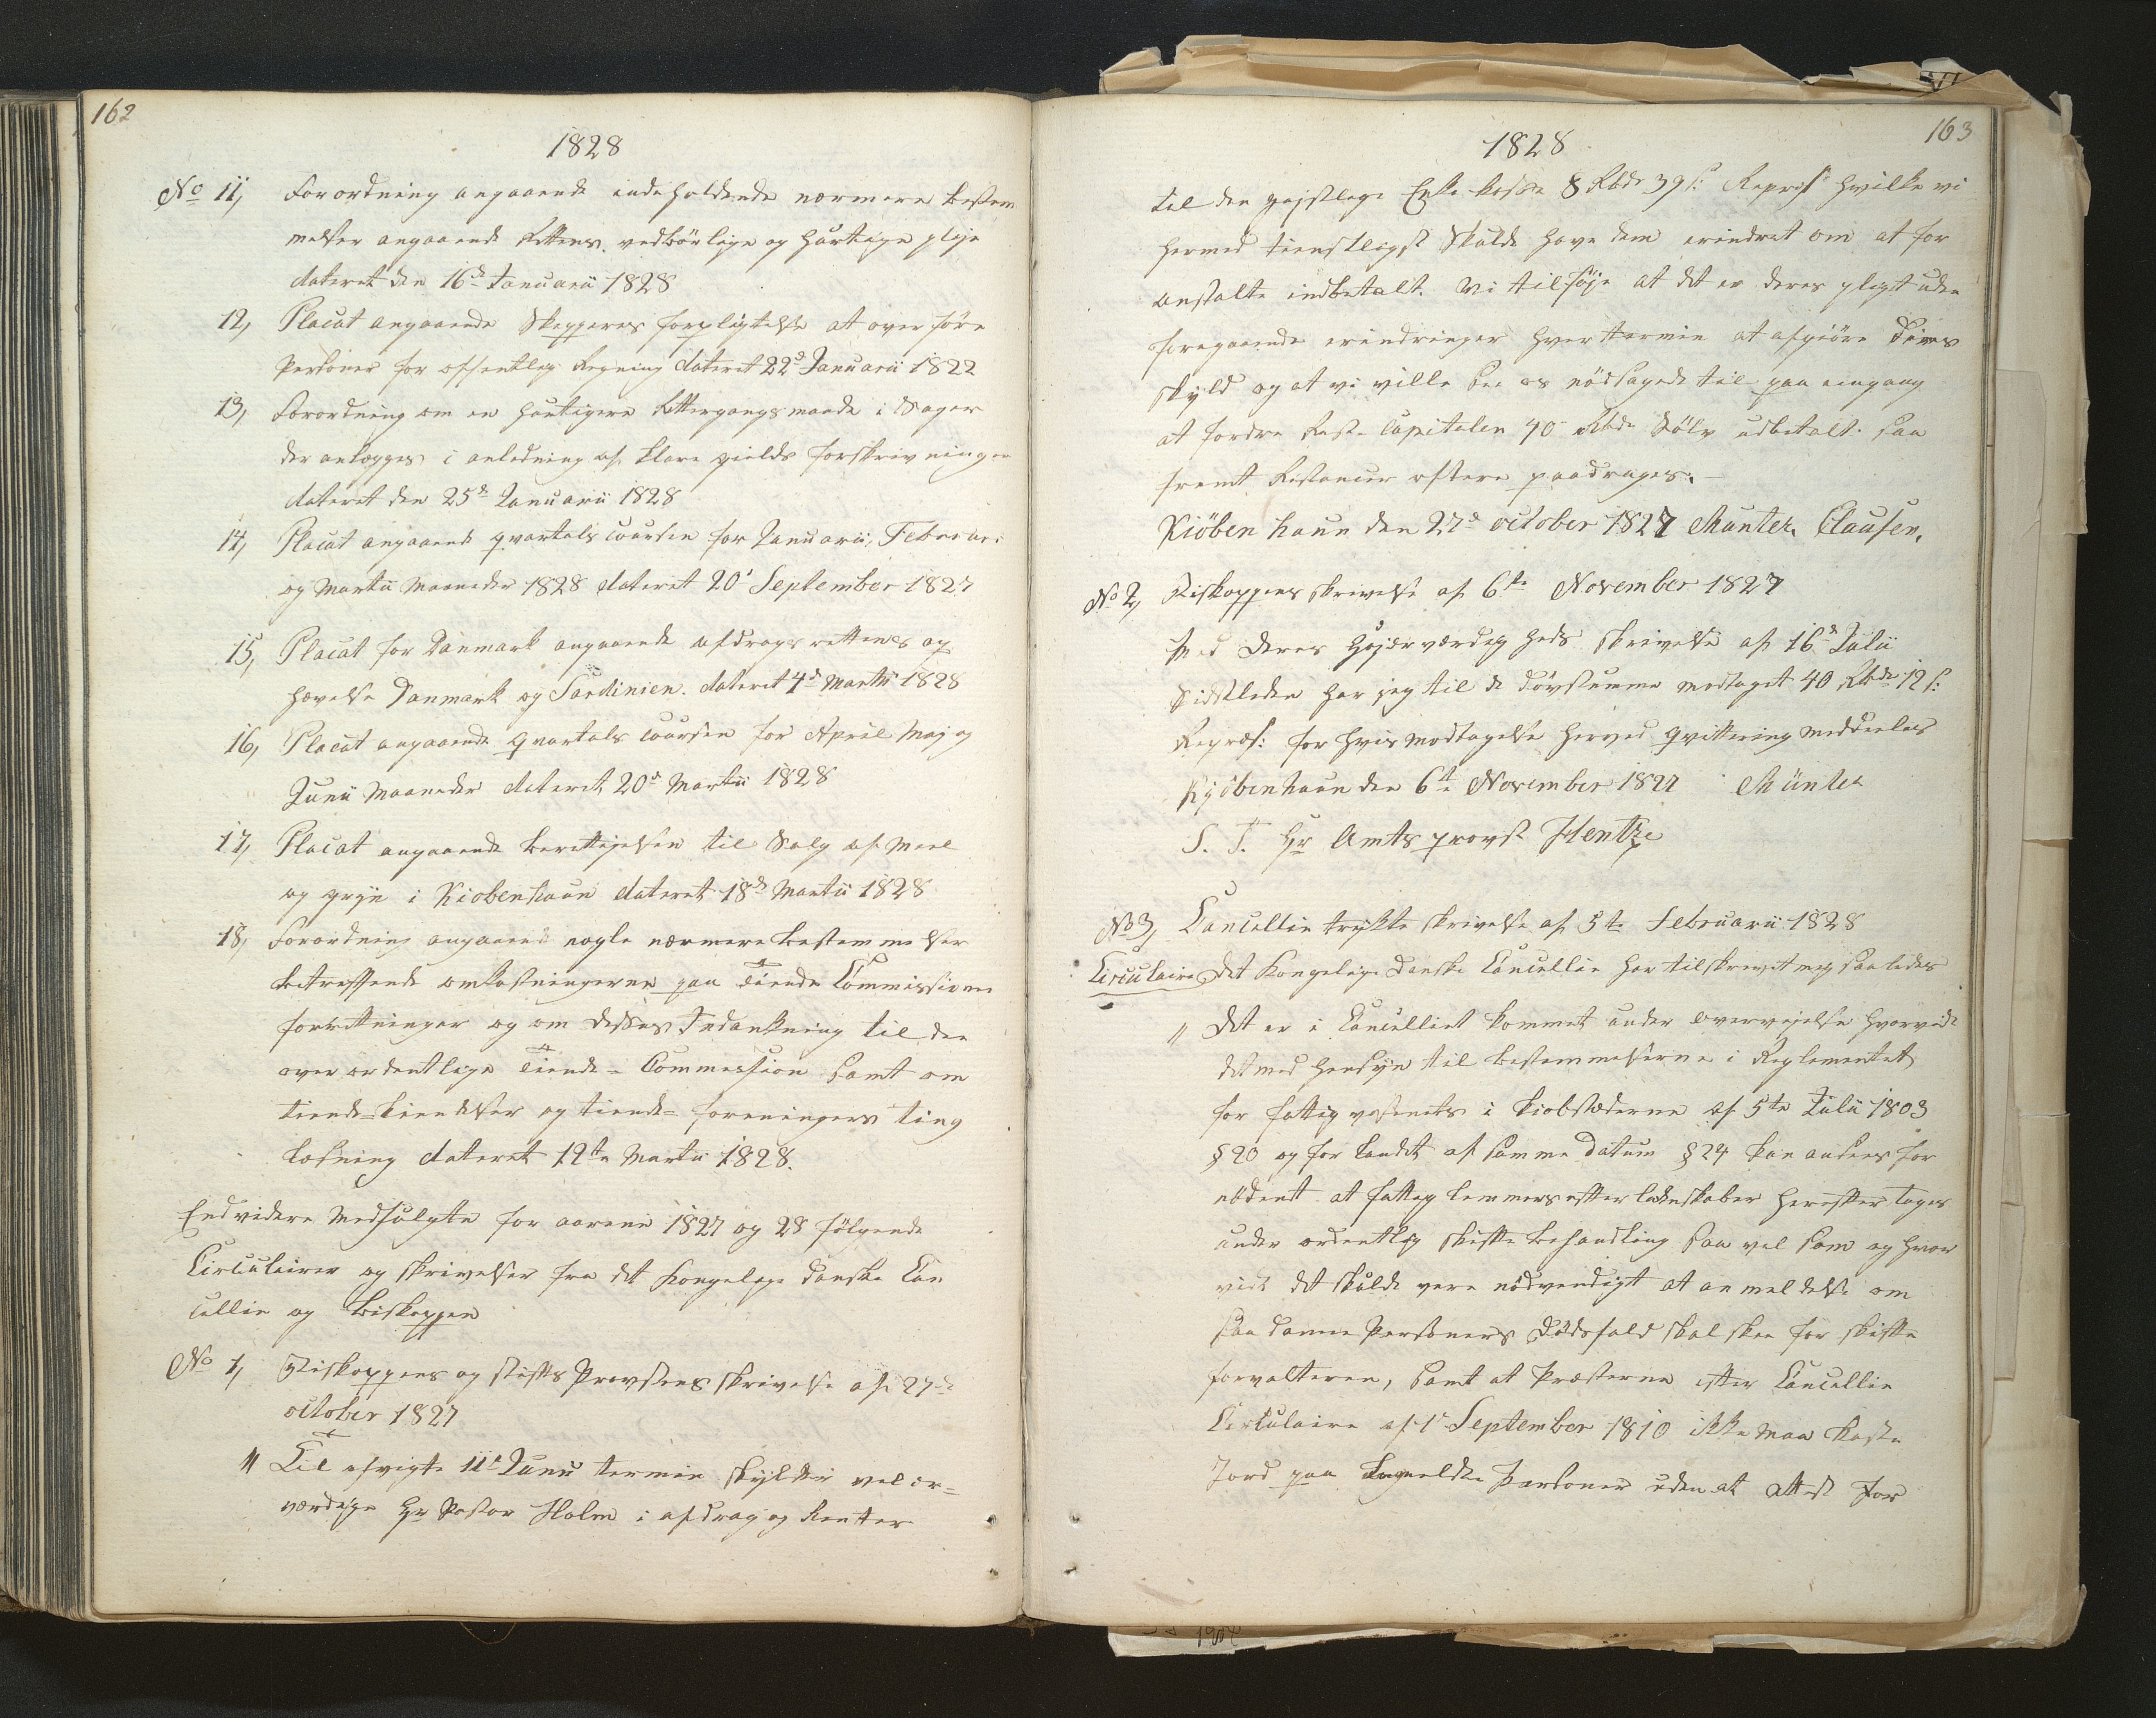 162
1828
No 11, Forordning angaaende indeholdende nærmere bestem
melser angaaende Rettens vedbörlige og hurtige pleje
dateret den 16d Januarii 1828
12, Placat angaaende Skippernes forpligtelse at over före
Personer for offentlig Regning dateret 22d Januarii 1822
13, Forordning om en hurtigere Rettergangsmaade i Sager
der anlægges i anledning af klare gields forskrivninger
dateret den 25d Januarii 1828
14, Placat angaaende qvartals coursen for Januarii, Februari
og Martii Maaneder 1828 dateret 20d September 1827
15, Placat for Danmark angaaende afdrags rettens op
hævelse Danmark og Sardinien. dateret 4d Martii 1828
16, Placat angaaende qvartals coursen for April Maj og
Junii Maaneder dateret 20d Martii 1828
17, Placat angaaende berettigelsen til Salg af Meel
og gryn i Kiobenhaun dateret 18d Martii 1828
18, Forordning angaaende nogle nærmere bestemmelser
betreffende omkostningerne paa Tiende Commissions
forretninger og om dessas Indankning til den
overordentlige Tiende-Commission samt om
tiende-kiendelser og tiende-foreningers ting
læsning dateret 12te Martii 1828.
Endvidere Medfulgte for aarene 1827 og 28 fölgende
Circulairer og skrivelser fra det Kongelige danske Can
cellie og Biskoppen
No 1, Biskoppens og stifts Provstens skrivelse af 27de
october 1827
" Til afvigte 11d Junii termin skylder vel ær-
værdige Hr Pastor Holm i afdrag og Renter
163
1828
til den gejstlige Enke kasse 8 Rbdr 39 s: Repræs hvilke vi
hermed tienstligst skulde have dem erindret om at for
anstalte indbetalt. Vi tilföje at det er deres pligt uden
foregaaende erindringer hver termin at afgiöre deres
skyld og at vi ville see os nödsagede til paa eingang
at fordre Rest-Capitalen 40 Rbdr Sölv udbetalt. saa
fremt Restancer oftere paadrages.
Kiöbenhaun den 27d october 1827 Münter. Clausen.
No 2, Biskoppens skrivelse af 6te November 1827
Med Deres Höjærværdigheds skrivelse af 16d Julii
sidstleden har jeg til de dövstumme modtaget 40 Rbdr 12 s:
Repræs: for hvis modtagelse herved qvittering meddeeles
Kjöbenhaun den 6te November 1827 Münter
S. T. Hr Amtsprovst Hentze
No 3, Cancellie trykte skrivelse af 5te Februarii 1828
Circulaire Det Kongelige Danske Cancellie har tilskrevet mig saaledes
" Det er i Cancelliet kommet under overvejelse hvorvidt
det med hensyn til bestemmelserne i Reglementet
for fattig væsenets i kiobstæderne af 5te Julii 1803
§ 20 og for Landet af samme Datum § 24 kan ansees for
nödent at fattig lemmers efterladenskaber herefter tages
under ordentlig skifte behandling saa vel som og hvor
vidt det skulde være nödvendigt at anmeldelse om
saadanne Personers dödsfald skal skee for skifte
forvalteren, samt at Præsterne efter Cancellie
Circulaire af 1d September 1810 ikke maa kaste
Jord paa bemeldte Personer uden at attest for